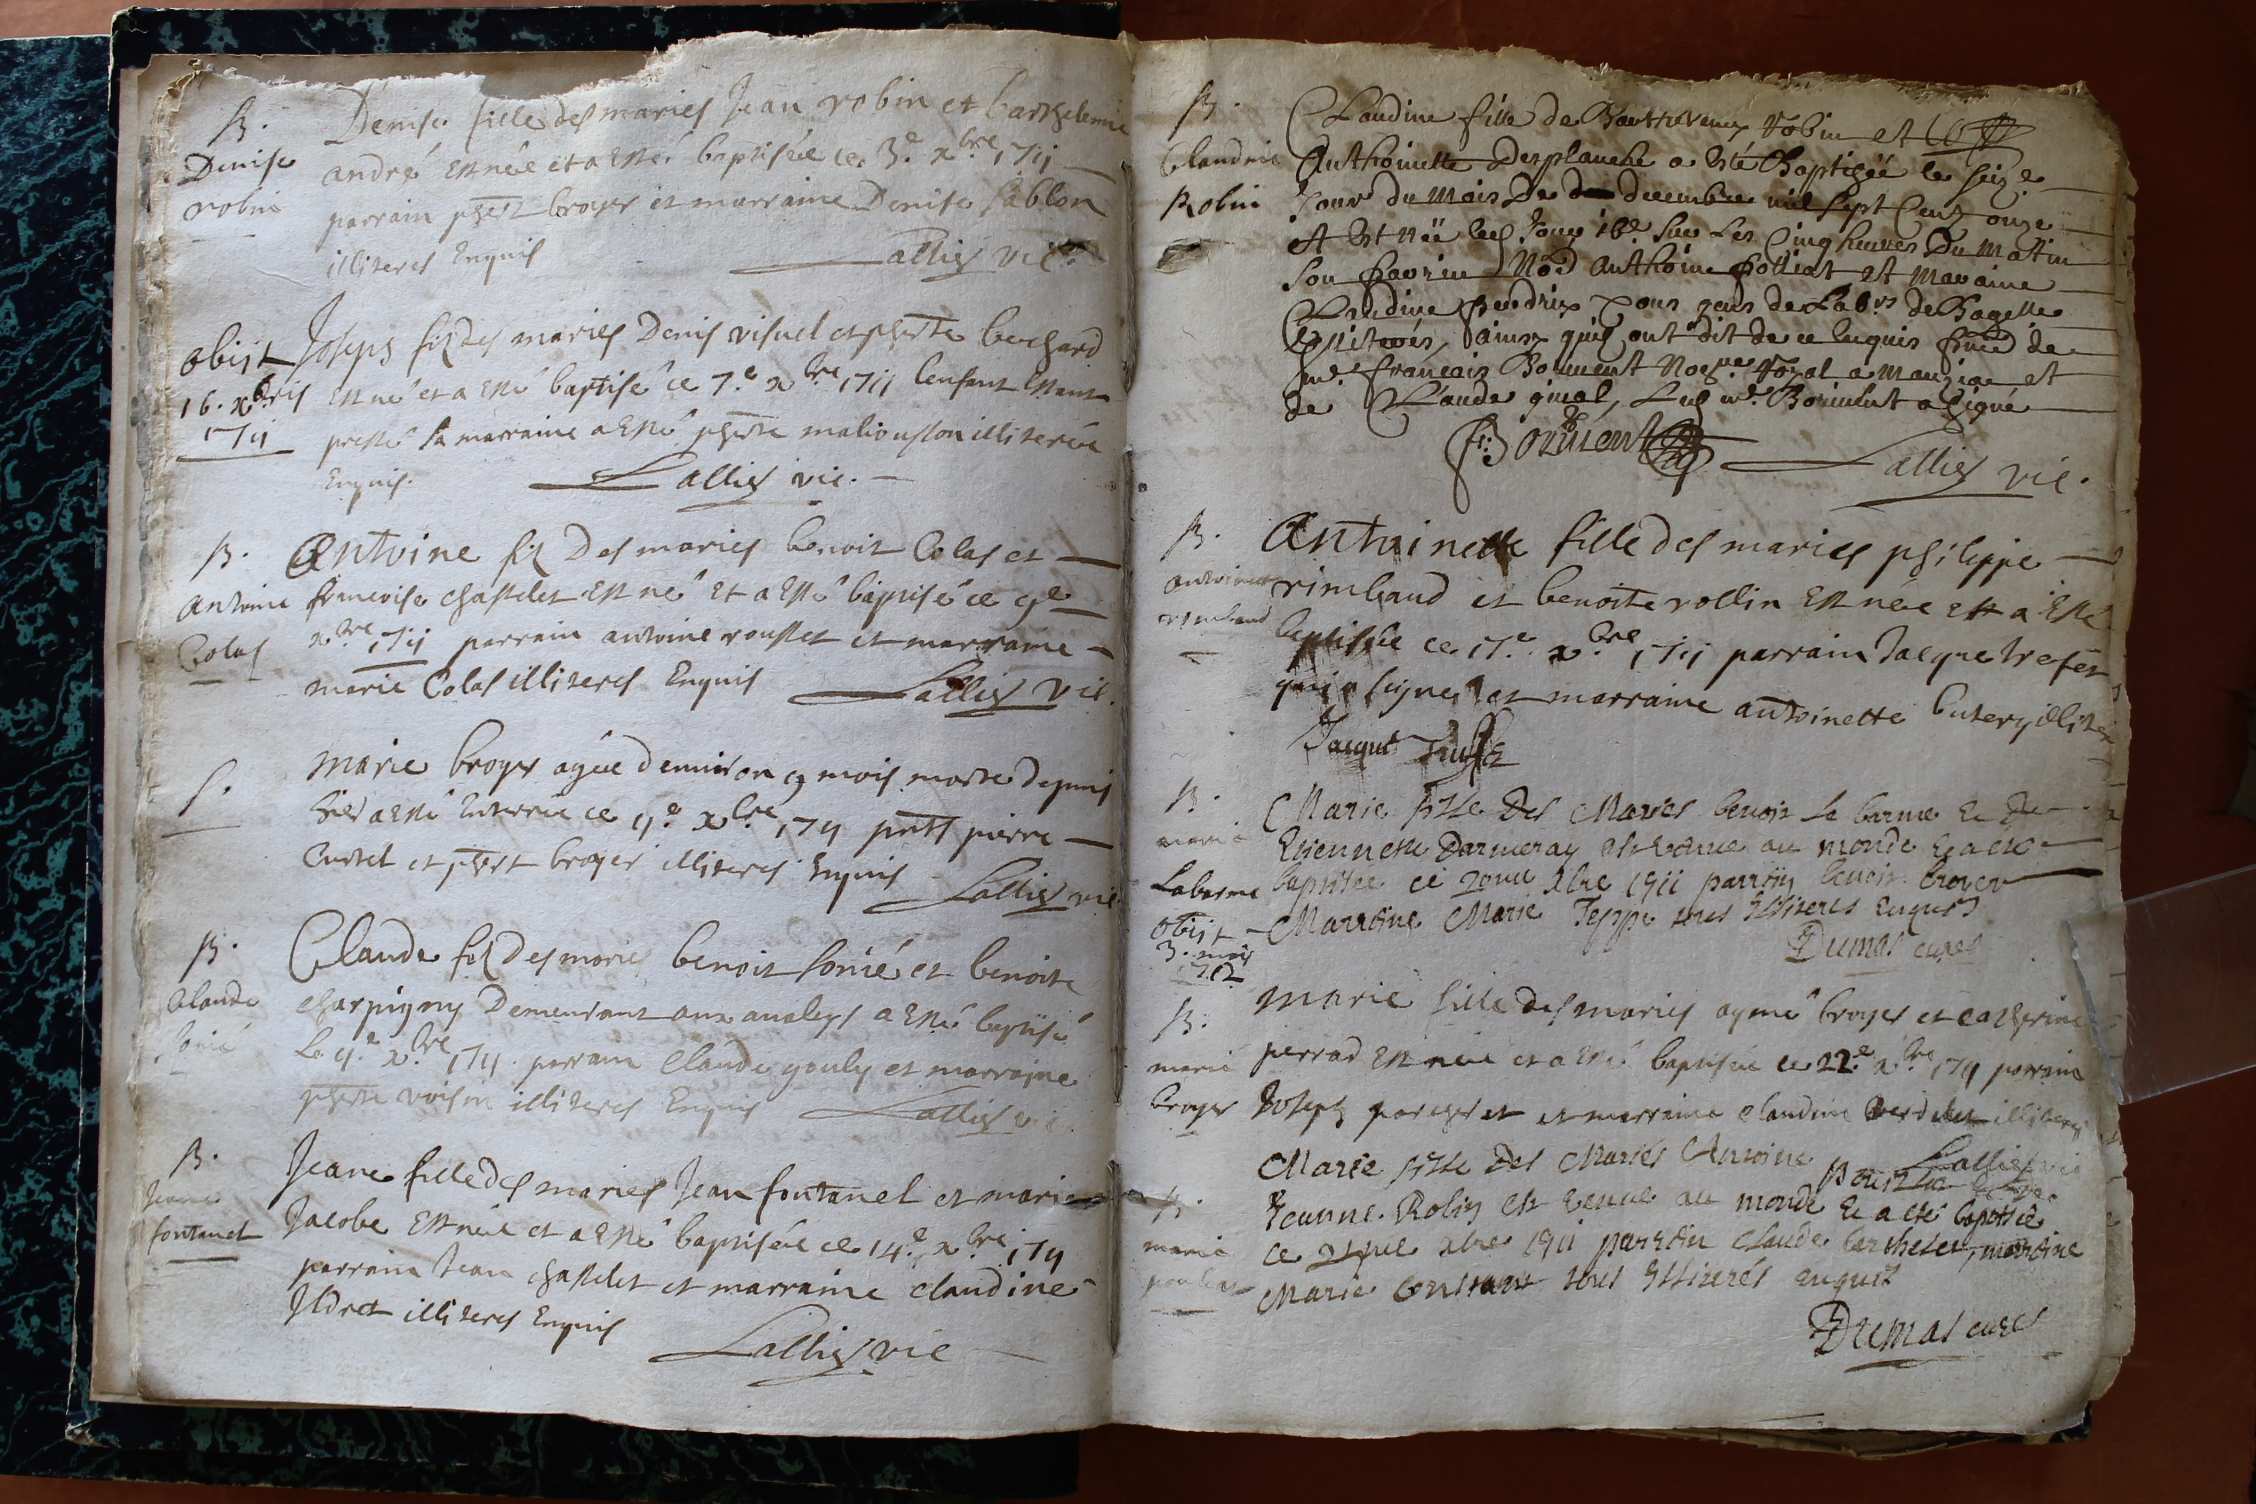 B.
Denise
robin
Denise fille des mariés Jean robin et barthelemie
andré est née et a esté baptisée ce 3.e xbre 1711
parrain phert broyer et marraine Denise sablon
illiteres Enquis
Lallies vic.
obijt
16. xbris
1711
Joseph fiz des mariés Denis visuel et pherte bechard
est né et a esté baptisé ce 7.e xbre 1711 lenfant estant
pressé sa marraine a esté pherte malionslon illiterée
Enquis.
Lallies vic.
B.
antoine
Colas
Antoine fiz des mariés benoit Colas et
francoise chastelet est né et a esté baptisé ce 9e
xbre 1711 parrain antoine rousset et marraine
marie Colas illiteres Enquis
Lallies vic.
S.
marie broyer agée d'environ 9 mois morte depuis
hier a esté Enterrée ce 11.e xbre 1711 pnts pierre
Curtet et phert broyer illiteres Enquis
Lallies vic
B.
Claude
sonié
Claude fiz des mariés benoit sonié et benoite
charpigny Demeurant aux analeys a esté baptisé
Le 11.e xbre 1711 parrain Claude gouly et marraine
pherte voisin illiteres Enquis
Lallies vic
B.
Jeane
fontanel
Jeane fille des mariés Jean fontanel et marie
Jacobe est née et a esté baptisée ce 14.e xbre 1711
parrain Jean chastelet et marraine claudine
Ildret illiteres Enquis
Lallies vic
B.
Claudine
Robin
Claudine fille de Barthelemy Robin et
Anthoinette Desplanche a esté Baptizéé le seize
Jour du mois De decembre mil sept Centz onze
et est néé led Jour 16e sur Les Cinq heures Du matin
son parrin Noel Anthoine pottiat et maraine
Claudine pendrix Tous gens de Labr de Bagelle
Illiterés, ainsy quilz ont dit de ce Enquis pnce de
me francois Borment Noere Royal a manziae et
de Claude guial, Led me Borment a signé
fr: Borment
Lallies vic.
B.
antoinette
rimbaud
Antoinette fille des mariés philippe
rimbaud et benoite rollin est née et a esté
baptisée ce 17.e xbre 1711 parrain Jacque trefet
qui a signé et marraine antoinette butery illitere
Jacque
B.
marie
Labarme
obijt
3. mars
1712
Marie fille des Mariés benoit La barme & De
Etiennette Darmeray est venue au monde & a ete
baptisée ce 20me Xbre 1711 parrein benoit broyer
Marreine Marie Teppe tous Illiteres enquis
Dumas curé
B.
marie
broyer
marie fille des mariés aymé broyer et catherine
perrad est née et a esté baptisée ce 22.e xbre 1711 parrain
Joseph parcheret et marraine claudine verdelet illiteres
Lallies vic
B.
marie
Marie fille des Mariés Antoine
Jeanne Robin est venue au monde & a eté baptisée
ce 21me xbre 1711 parrein Claude barthelet, marreine
Marie Constant tous Illiterés enquis
Dumas curé